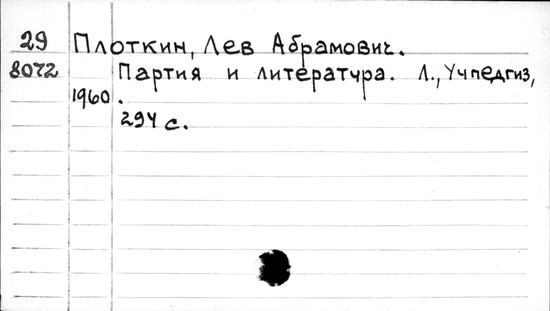 29 Плоткин, Лев Абрамович.
8072 Партия и литература. Л., Учпедгиз,
1960.
294 с.